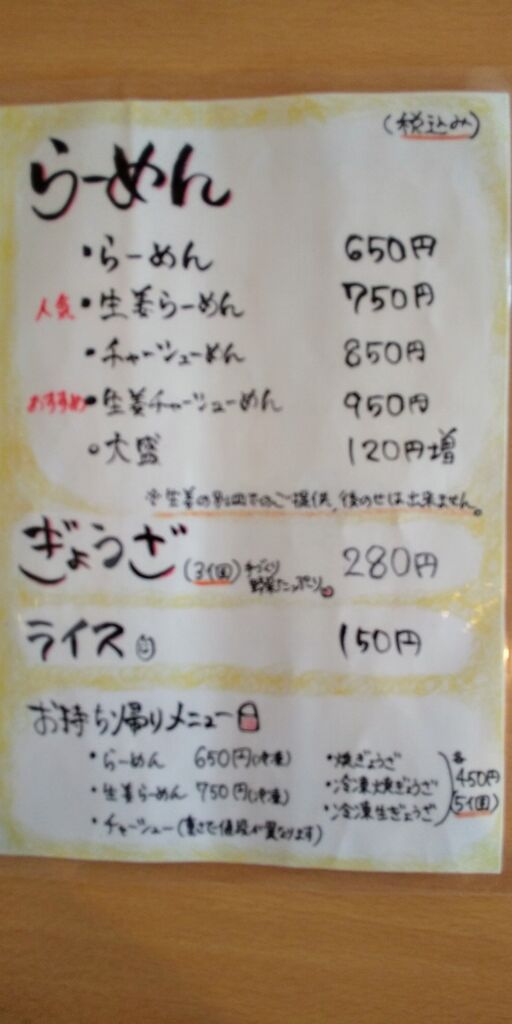 (税込み)
らーめん
・らーめん 650円
人気 ・生姜らーめん 750円
・チャーシューめん 850円
おすすめ ・生姜チャーシューめん 950円
○大盛 120円増
※生姜の別皿でのご提供、後のせは出来ません。
ぎょうざ (3個) 手づくり 野菜たっぷり 280円
ライス 150円
お持ち帰りメニュー
・らーめん 650円(冷凍)
・生姜らーめん 750円(冷凍)
・チャーシュー(重さで値段が異なります)
・焼ぎょうざ
・冷凍焼ぎょうざ
・冷凍生ぎょうざ
各 450円 (5個)